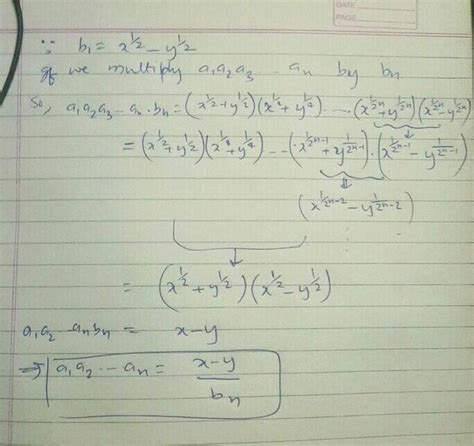 DATE
PAGE
∵ b₁ = x^{1/2} - y^{1/2}
If we multiply a₁a₂a₃ - aₙ by bₙ
So, a₁a₂a₃ -- aₙ.bₙ = (x^{1/2}+y^{1/2})(x^{1/4}+y^{1/4}) ---- (x^{1/2ⁿ}+y^{1/2ⁿ})(x^{1/2ⁿ}-y^{1/2ⁿ})
= (x^{1/2}+y^{1/2})(x^{1/4}+y^{1/4}) --- (x^{1/2ⁿ⁻¹}+y^{1/2ⁿ⁻¹}).(x^{1/2ⁿ⁻¹}-y^{1/2ⁿ⁻¹})
(x^{1/2ⁿ⁻²}-y^{1/2ⁿ⁻²})
= (x^{1/2}+y^{1/2})(x^{1/2}-y^{1/2})
a₁a₂ - aₙbₙ = x-y
⇒ a₁a₂ --- aₙ = x-y
bₙ